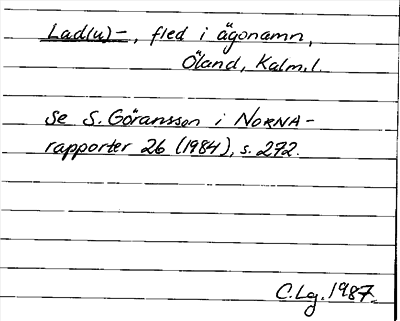 Lad(u)-, fled i ägonamn,
Öland, Kalm.l.
Se S. Göransson i NORNA-
rapporter 26 (1984), s. 272.
C.Lg. 1987.